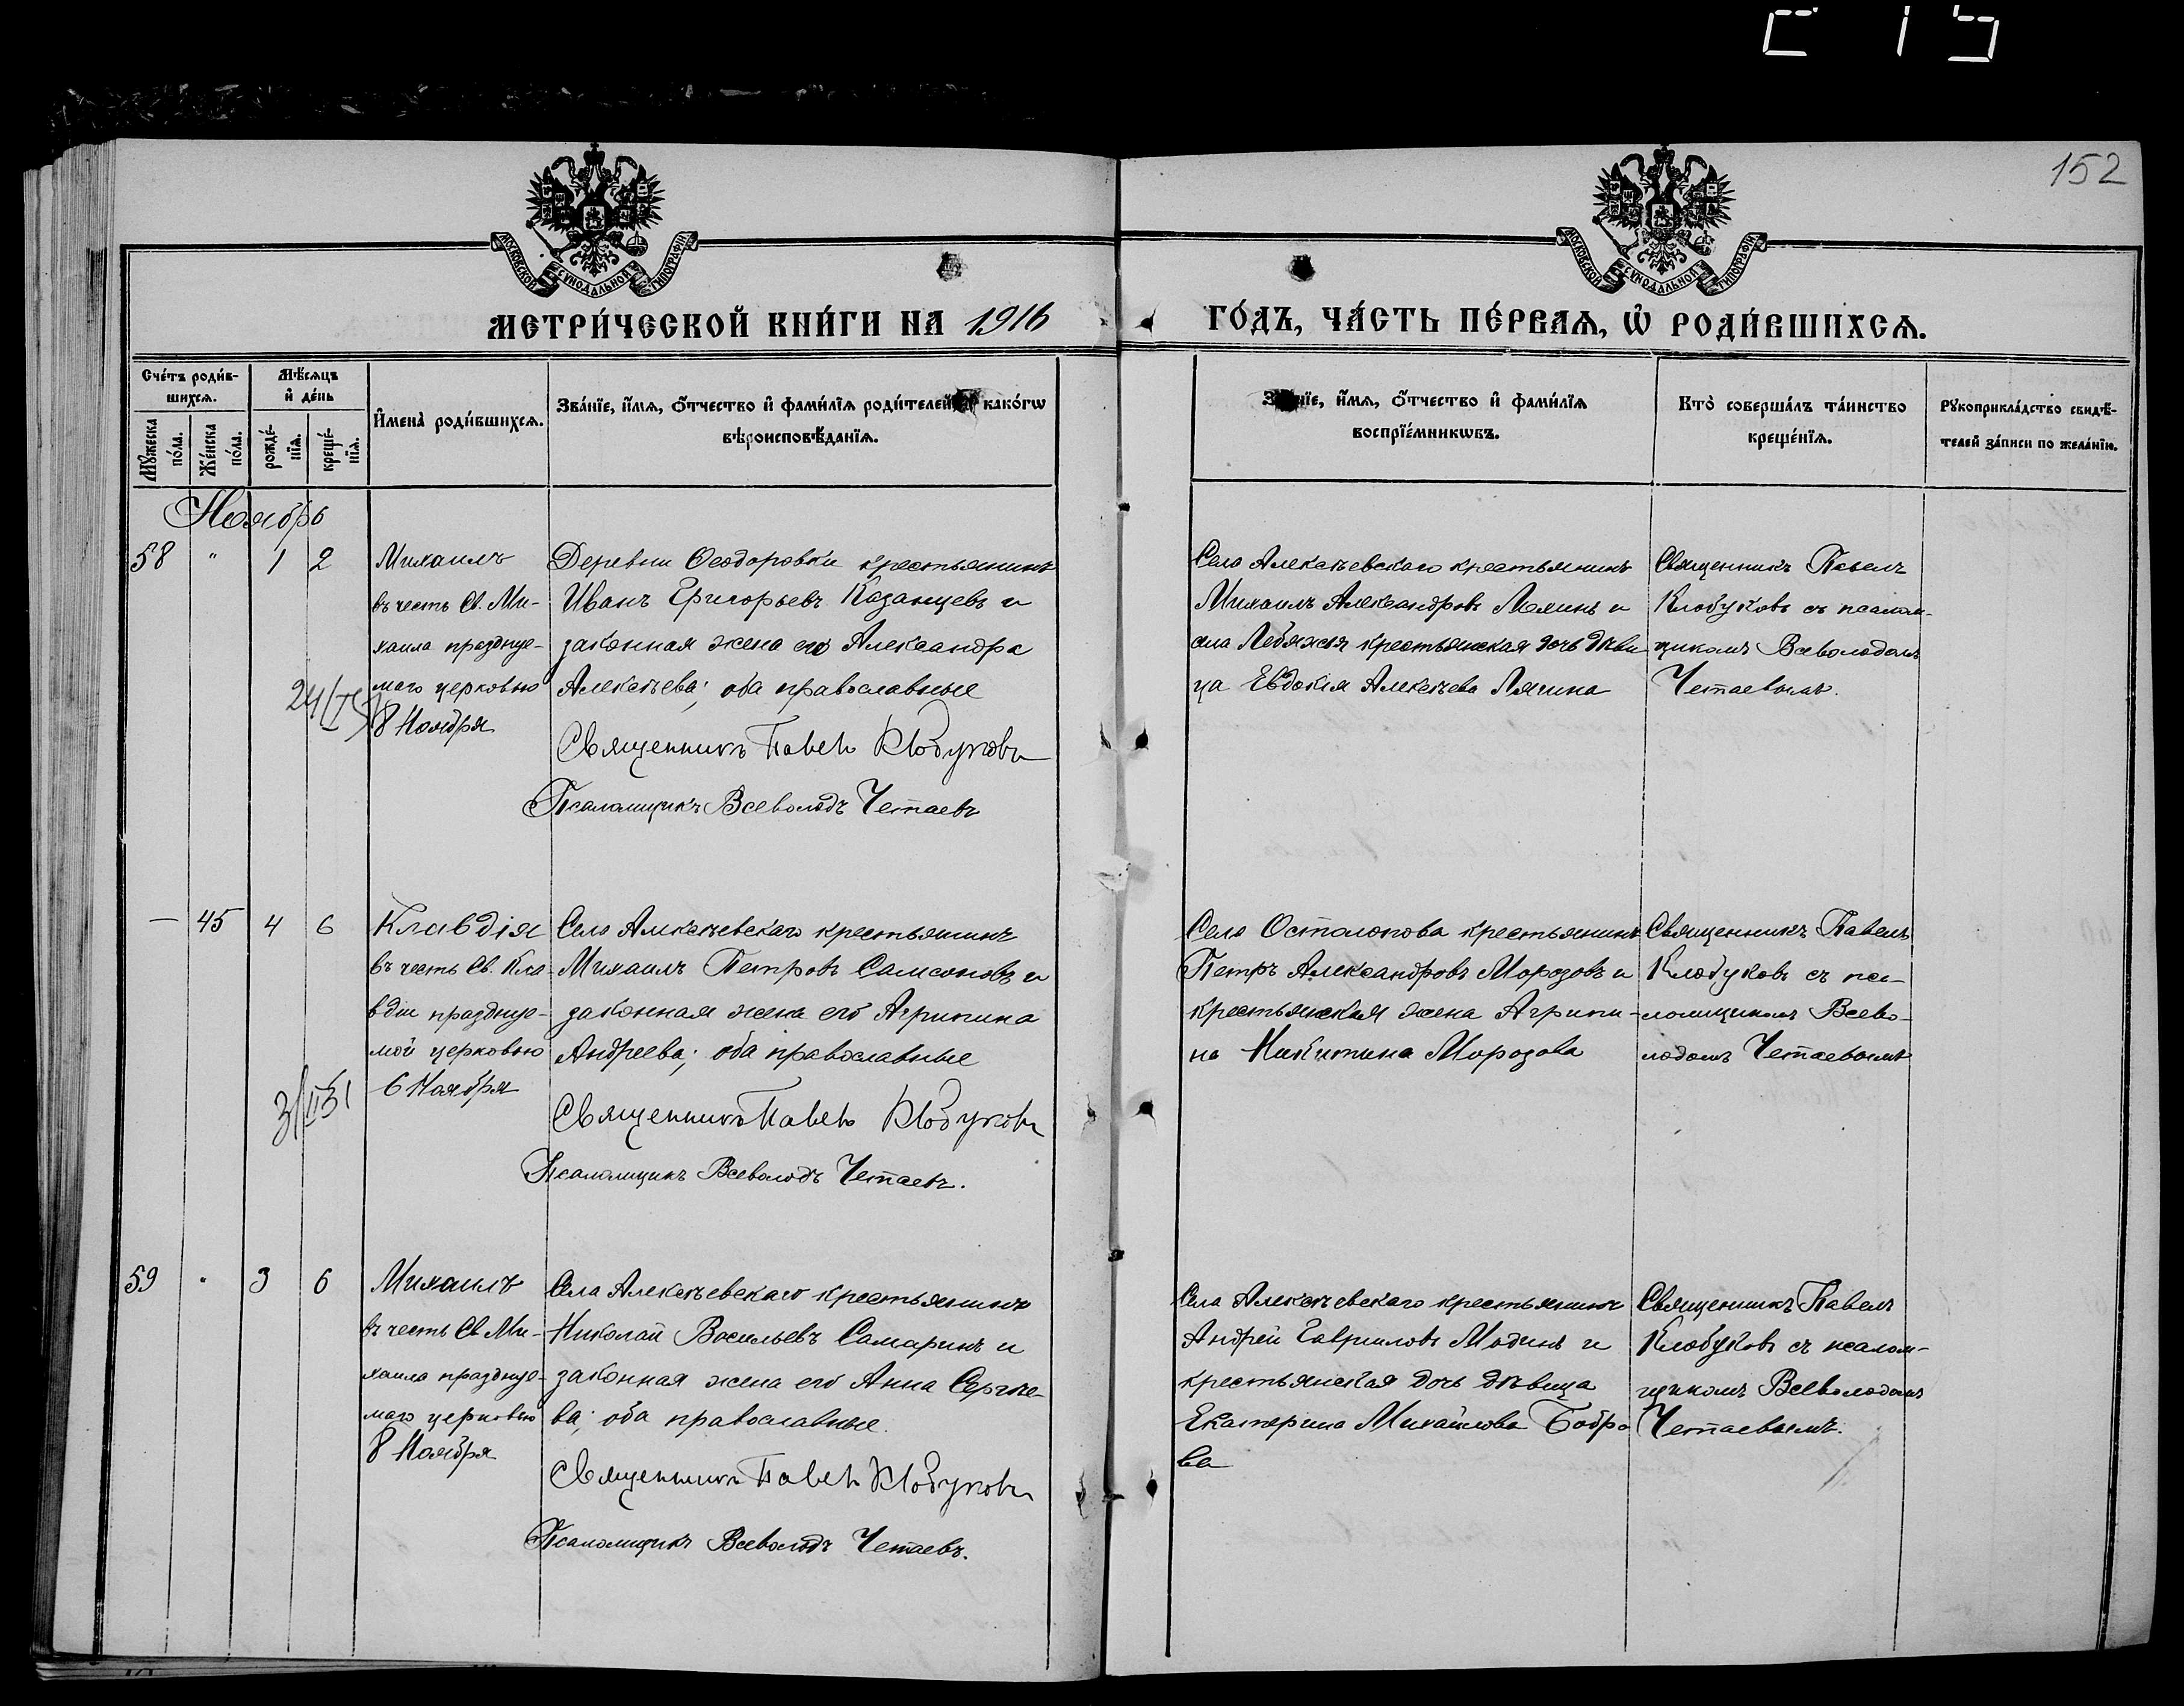 152
МОСКОВСКОЙ СѴНОДАЛЬНОЙ ТИПОГРАФІИ
МОСКОВСКОЙ СѴНОДАЛЬНОЙ ТИПОГРАФІИ
МЕТРИ́ЧЕСКОЙ КНИ́ГИ НА 1916 ГО́ДЪ, ЧА́СТЬ ПЕ́РВАѦ, Ѡ҆ РОДИ́ВШИХСѦ.
Сче́тъ роди́в-
шихсѧ.
Мꙋ́жеска
по́ла.
Же́нска
по́ла.
Мѣ́сѧцъ
и҆ де́нь
рожде́-
нїѧ.
креще́-
нїѧ.
И҆мена̀ роди́вшихсѧ.
Зва́нїе, и҆́мѧ, ѻ҆́тчество и҆ фами́лїѧ роди́телей, и҆ како́гѡ
вѣроисповѣ́данїѧ.
Зва́нїе, и҆́мѧ, ѻ҆́тчество и҆ фами́лїѧ
воспрїе́мникѡвъ.
Кто̀ соверша́лъ та́инство
креще́нїѧ.
Рꙋкоприкла́дство свидѣ́-
телей за́писи по жела́нїю.
Ноябрь
58 " 1 2
Михаилъ
въ честь Св. Ми-
хаила праздуе-
маго церковью
8 Ноября
Деревни Ѳеодоровки крестьянинъ
Иванъ Григорьевъ Казанцевъ и
законная жена его Александра
Алексѣева; оба православные
Священникъ Павелъ Клобуковъ
Псаломщикъ Всеволодъ Четаевъ
Села Алексѣевскаго крестьянинъ
Михаилъ Александровъ и
села Лебяжья крестьянская дочь дѣви
ца Евдокія Алексѣева Лячина
Священникъ Павелъ
Клобуковъ съ псалом-
щикомъ Всеволодомъ
Четаевымъ.
— 45 4 6
Клавдія
въ честь Св. Кла-
вдіи праздуе-
мой церковью
6 Ноября
Села Алексѣевскаго крестьянинъ
Михаилъ Петровъ Самсоновъ и
законная жена его Агрипина
Андреева; оба православные
Священникъ Павелъ Клобуковъ
Псаломщикъ Всеволодъ Четаевъ.
Села Остолопова крестьянинъ
Петръ Александровъ Морозовъ и
крестьянская жена Агрипи-
на Никитина Морозова
Священникъ Павелъ
Клобуковъ съ пса-
ломщикомъ Всево-
лодомъ Четаевымъ
59 " 3 6
Михаилъ
въ честь Св Ми-
хаила праздуе-
маго церковью
8 Ноября
Села Алексѣевскаго крестьянинъ
Николай Васильевъ Самаринъ и
законная жена его Анна Сергѣе-
ва; оба православные.
Священникъ Павелъ Клобуковъ
Псаломщикъ Всеволодъ Четаевъ.
Села Алексѣевскаго крестьянинъ
Андрей Гавриловъ Модинъ и
крестьянская дочь дѣвица
Екатерина Михайлова Бобро
ва
Священникъ Павелъ
Клобуковъ съ псалом-
щикомъ Всеволодомъ
Четаевымъ.